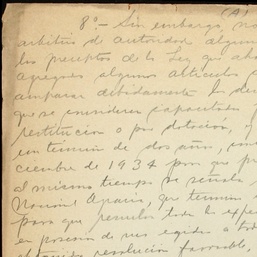 (A)
8º.- Sin embargo, no
arbitrio de autoridad alguna
los preceptos de la Ley que aho
agregues algunos artículos
amparar debidamente los der
que se consideren capacitados
restitución o por dotación,
un termino de dos años,
ciembre de 1934 para que pr
al mismo tiempo se señala
Nacional Agraria, que termina
para que resuelva todos los expe
en posesion de sus egidos a tod
resolución favorable,